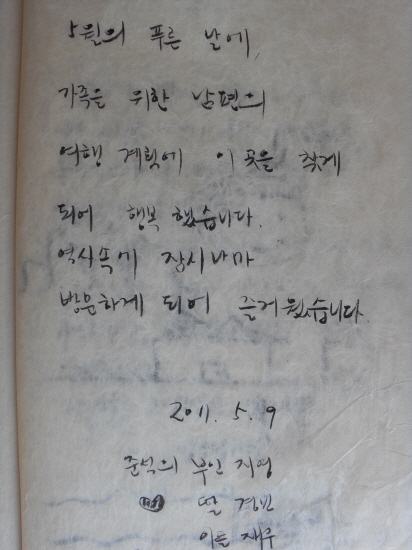 5월의 푸른 날에,
가족을 위한 남편의
여행 계획에 이 곳을 찾게
되어 행복했습니다.
역사속에 잠시나마
방문하게 되어 즐거웠습니다.
2011. 5. 9
준석의 부인 지영
딸 경빈
아들 재우